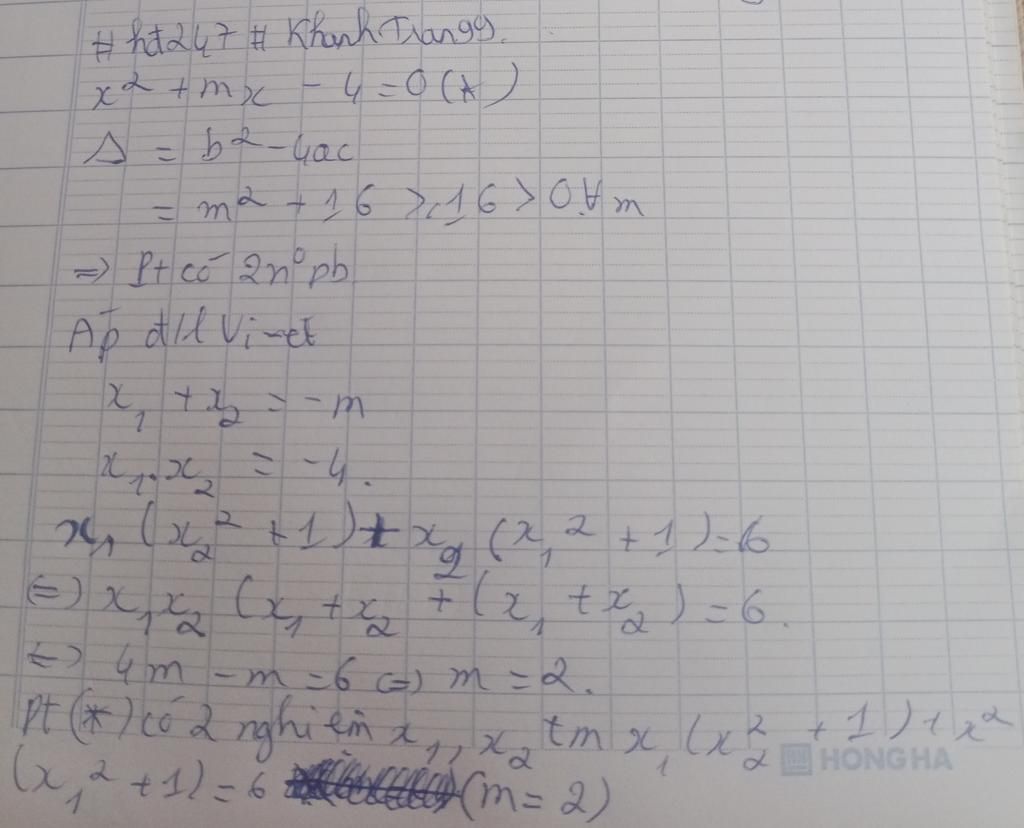 # hđ247 # KhanhTrang99.
x² + mx - 4 = 0 (*)
Δ = b² - 4ac
= m² + 16 ≥ 16 > 0 ∀m
=> Pt có 2n⁰ pb
Áp d/l Vi-et
x₁ + x₂ = -m
x₁.x₂ = -4.
x₁ (x₂² + 1) + x₂ (x₁² + 1) = 6
<=> x₁x₂ (x₁ + x₂ + (x₁ + x₂) = 6.
<=> 4m - m = 6 <=> m = 2.
Pt (*) có 2 nghiệm x₁, x₂ tm x₁ (x₂² + 1) + x²
(x₁² + 1) = 6 (m = 2)
HONG HA